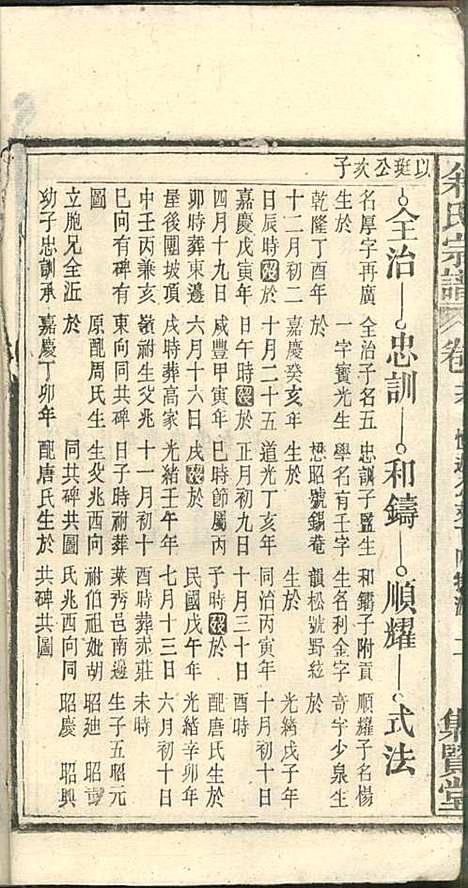 余氏宗譜 卷
集賢堂
以珽公亥子
全治 忠訓 和鑄 順耀 式法
名厚字再廣
生於
乾隆丁酉年
十二月初二
日辰時歿於
嘉慶戊寅年
四月十九日
卯時葬東邊
屋後團坡頂
中壬丙兼亥
巳向有碑有
圖
立胞兄全近
幼子忠訓承
全治子名五
一字實光生
於
嘉慶癸亥年
十月二十五
日午時歿於
咸豐甲寅年
六月十六日
戌時葬高家
嶺祔生父兆
東向同共碑
原配周氏生
於
嘉慶丁卯年
忠訓子監生
學名有壬字
懋昭號錫菴
生於
道光丁亥年
正月初九日
巳時節屬丙
戌歿於
光緒壬午年
十一月初十
日子時祔葬
生父兆西向
同共碑共圖
配唐氏生於
和鑄子附貢
生名利金字
韻松號野
生於
同治丙寅年
十月三十日
子時歿於
民國戊午年
七月十三日
酉時葬赤莊
葉秀邑南邊
祔伯祖妣胡
氏兆西向同
共碑共圖
順耀子名楊
奇字少泉生
於
光緒戊子年
十月初十日
酉時
配唐氏生於
光緒辛卯年
六月初十日
未時
生子五昭元
昭廸 昭
昭慶 昭興